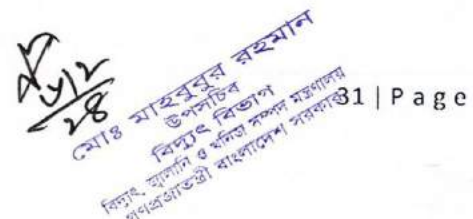 মোঃ মাহবুবুর রহমান
উপসচিব
বিদ্যুৎ বিভাগ
বিদ্যুৎ, জ্বালানি ও খনিজ সম্পদ মন্ত্রণালয়
গণপ্রজাতন্ত্রী বাংলাদেশ সরকার
31 | P a g e